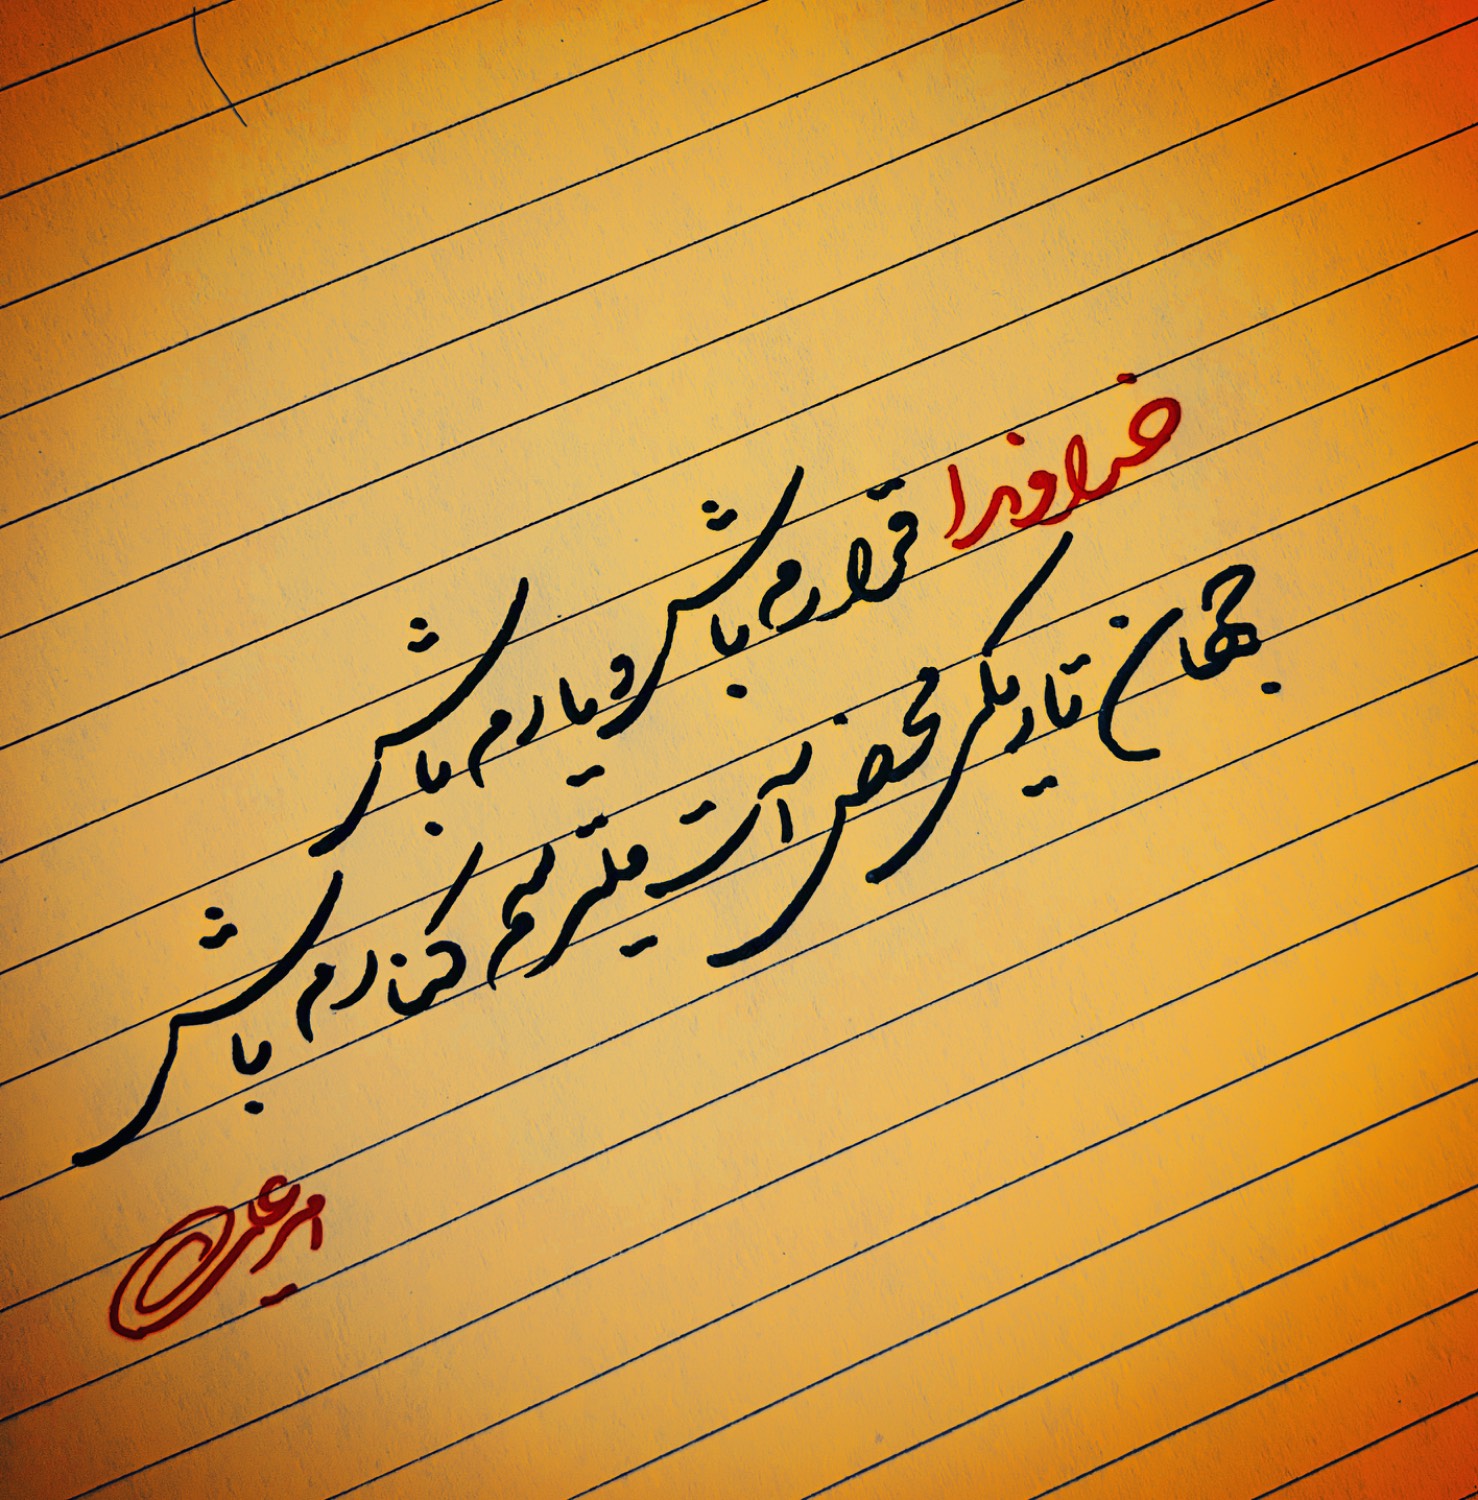 خداوندا قرارم باش و یارم باش
جهان تاریکی محض است میترسم کنارم باش
امیرعلی